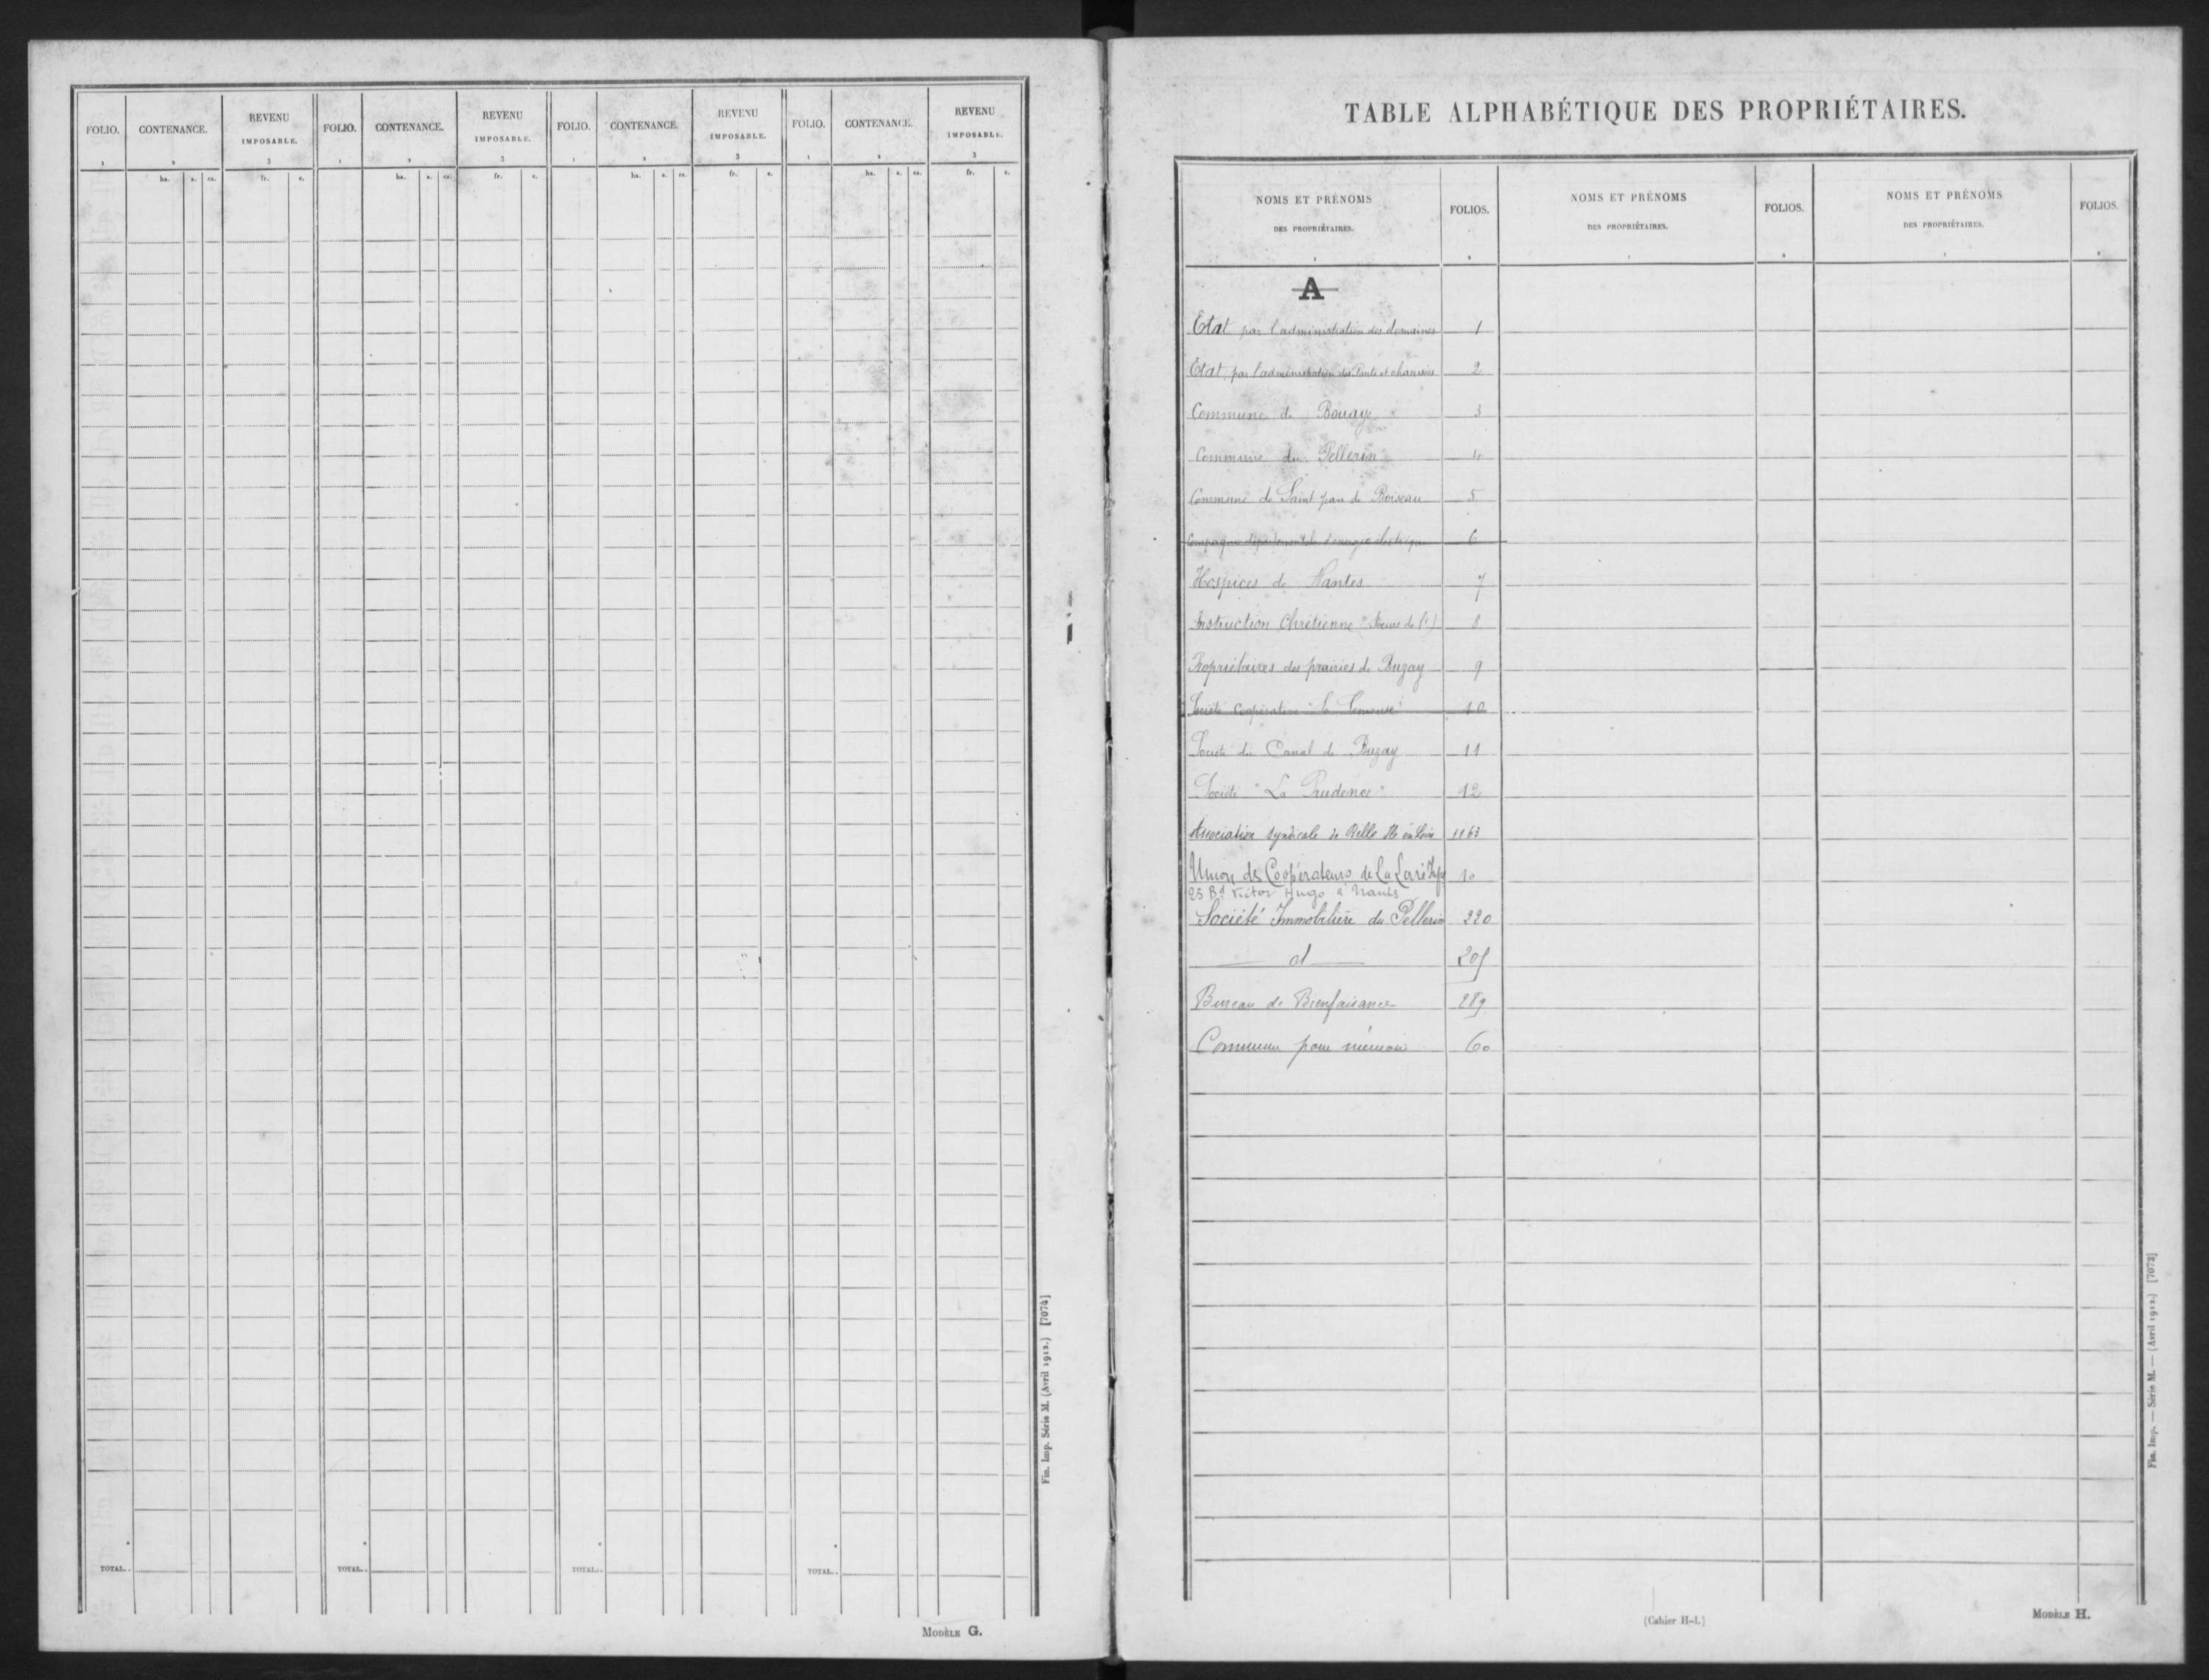 FOLIO. CONTENANCE. REVENU IMPOSABLE. FOLIO. CONTENANCE. REVENU IMPOSABLE. FOLIO. CONTENANCE. REVENU IMPOSABLE. FOLIO. CONTENANCE. REVENU IMPOSABLE.
1 2 3 1 2 3 1 2 3 1 2 3
ha. a. ca. fr. c. ha. a. ca. fr. c. ha. a. ca. fr. c. ha. a. ca. fr. c.
TOTAL.. TOTAL.. TOTAL.. TOTAL..
Fin. Imp. Série M. (Avril 1912.) [7074]
MODÈLE G.
TABLE ALPHABÉTIQUE DES PROPRIÉTAIRES.
NOMS ET PRÉNOMS DES PROPRIÉTAIRES. FOLIOS. NOMS ET PRÉNOMS DES PROPRIÉTAIRES. FOLIOS. NOMS ET PRÉNOMS DES PROPRIÉTAIRES. FOLIOS.
1 2 1 2 1 2
A
Etat par l'administration des domaines 1
Etat, par l'administration des Ponts et chaussées 2
Commune de Bouaye 3
Commune du Pellerin 4
Commune de Saint Jean de Boiseau 5
Compagnie départementale d'énergie électrique 6
Hospices de Nantes 7
Instruction Chrétienne (Soeurs de l') 8
Propriétaires des prairies de Buzay 9
Société Coopérative "la 10
Société du Canal de Buzay 11
Société "La Prudence" 12
Association syndicale de Belle Ile en Loire 1163
Union des Coopérateurs de La Loire Infre 10
25 Bd Victor Hugo à Nantes
Société Immobilière du Pellerin 220
d 205
Bureau de Bienfaisance 289
Commune pour mémoire 60
(Cahier H-I.)
MODÈLE H.
Fin. Imp. — Série M. — (Avril 1912.) [7072]